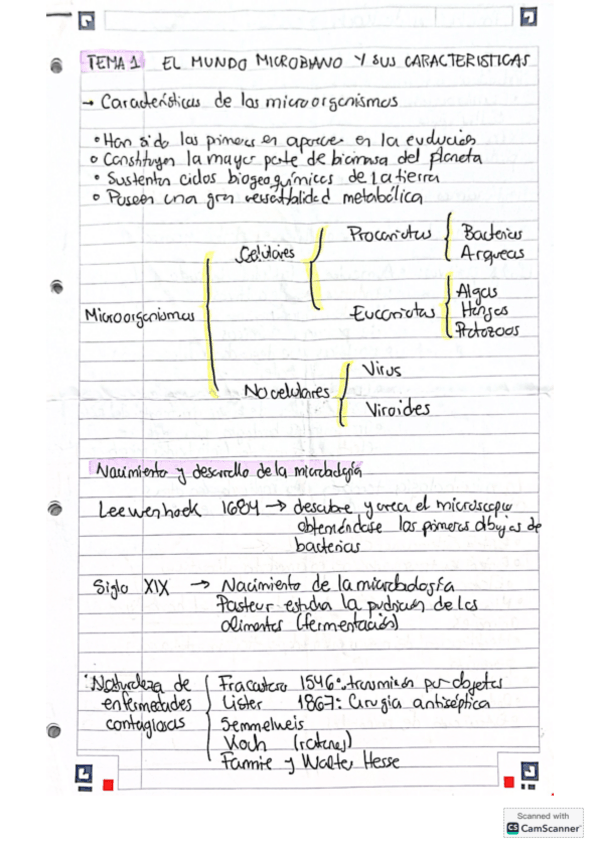 TEMA 1 EL MUNDO MICROBIANO Y SUS CARACTERISTICAS
→ Características de los microorganismos
• Han sido los primeros en aparecer en la evolución
• Constituyen la mayor parte de biomasa del planeta
• Sustentan ciclos biogeoquímicos de la tierra
• Poseen una gran versatilidad metabólica
Microorganismos
Celulares
Procariotas
Bacterias
Arqueas
Eucariotas
Algas
Hongos
Protozoos
No celulares
Virus
Viroides
Nacimiento y desarrollo de la microbiología
Leewenhoek 1684 → descubre y crea el microscopio
obteniéndose los primeros dibujos de
bacterias
Siglo XIX → Nacimiento de la microbiología
Pasteur estudia la pudrición de los
alimentos (fermentación)
Naturaleza de
enfermedades
contagiosas
Fracastoro 1546: transmisión por objetos
Lister 1867: Cirugía antiséptica
Semmelweis
Koch (ratones)
Fannie y Walter Hesse
Scanned with
CS CamScanner